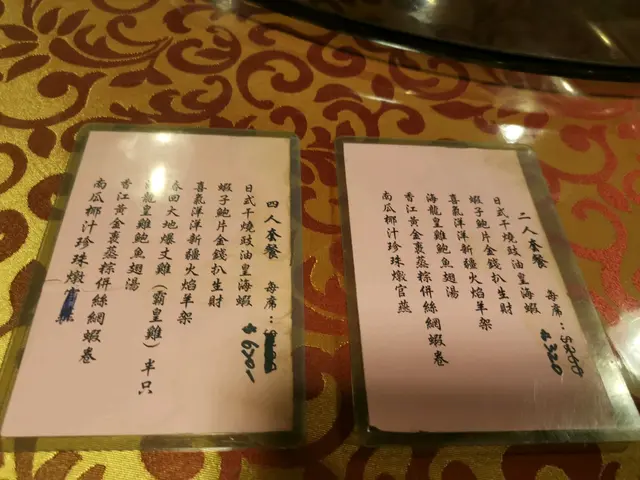 二人套餐 每席：$200 $320
日式干燒豉油皇海蝦
蝦子鮑片金錢扒生財
喜氣洋洋新疆火焰羊架
海龍皇雞鮑魚翅湯
香江黃金裹蒸粽併絲網蝦卷
南瓜椰汁珍珠燉官燕
四人套餐 每席： 620/-
日式干燒豉油皇海蝦
蝦子鮑片金錢扒生財
喜氣洋洋新疆火焰羊架
春回大地爆丈雞（霸皇雞）半只
海龍皇雞鮑魚翅湯
香江黃金裹蒸粽併絲網蝦卷
南瓜椰汁珍珠燉 燕